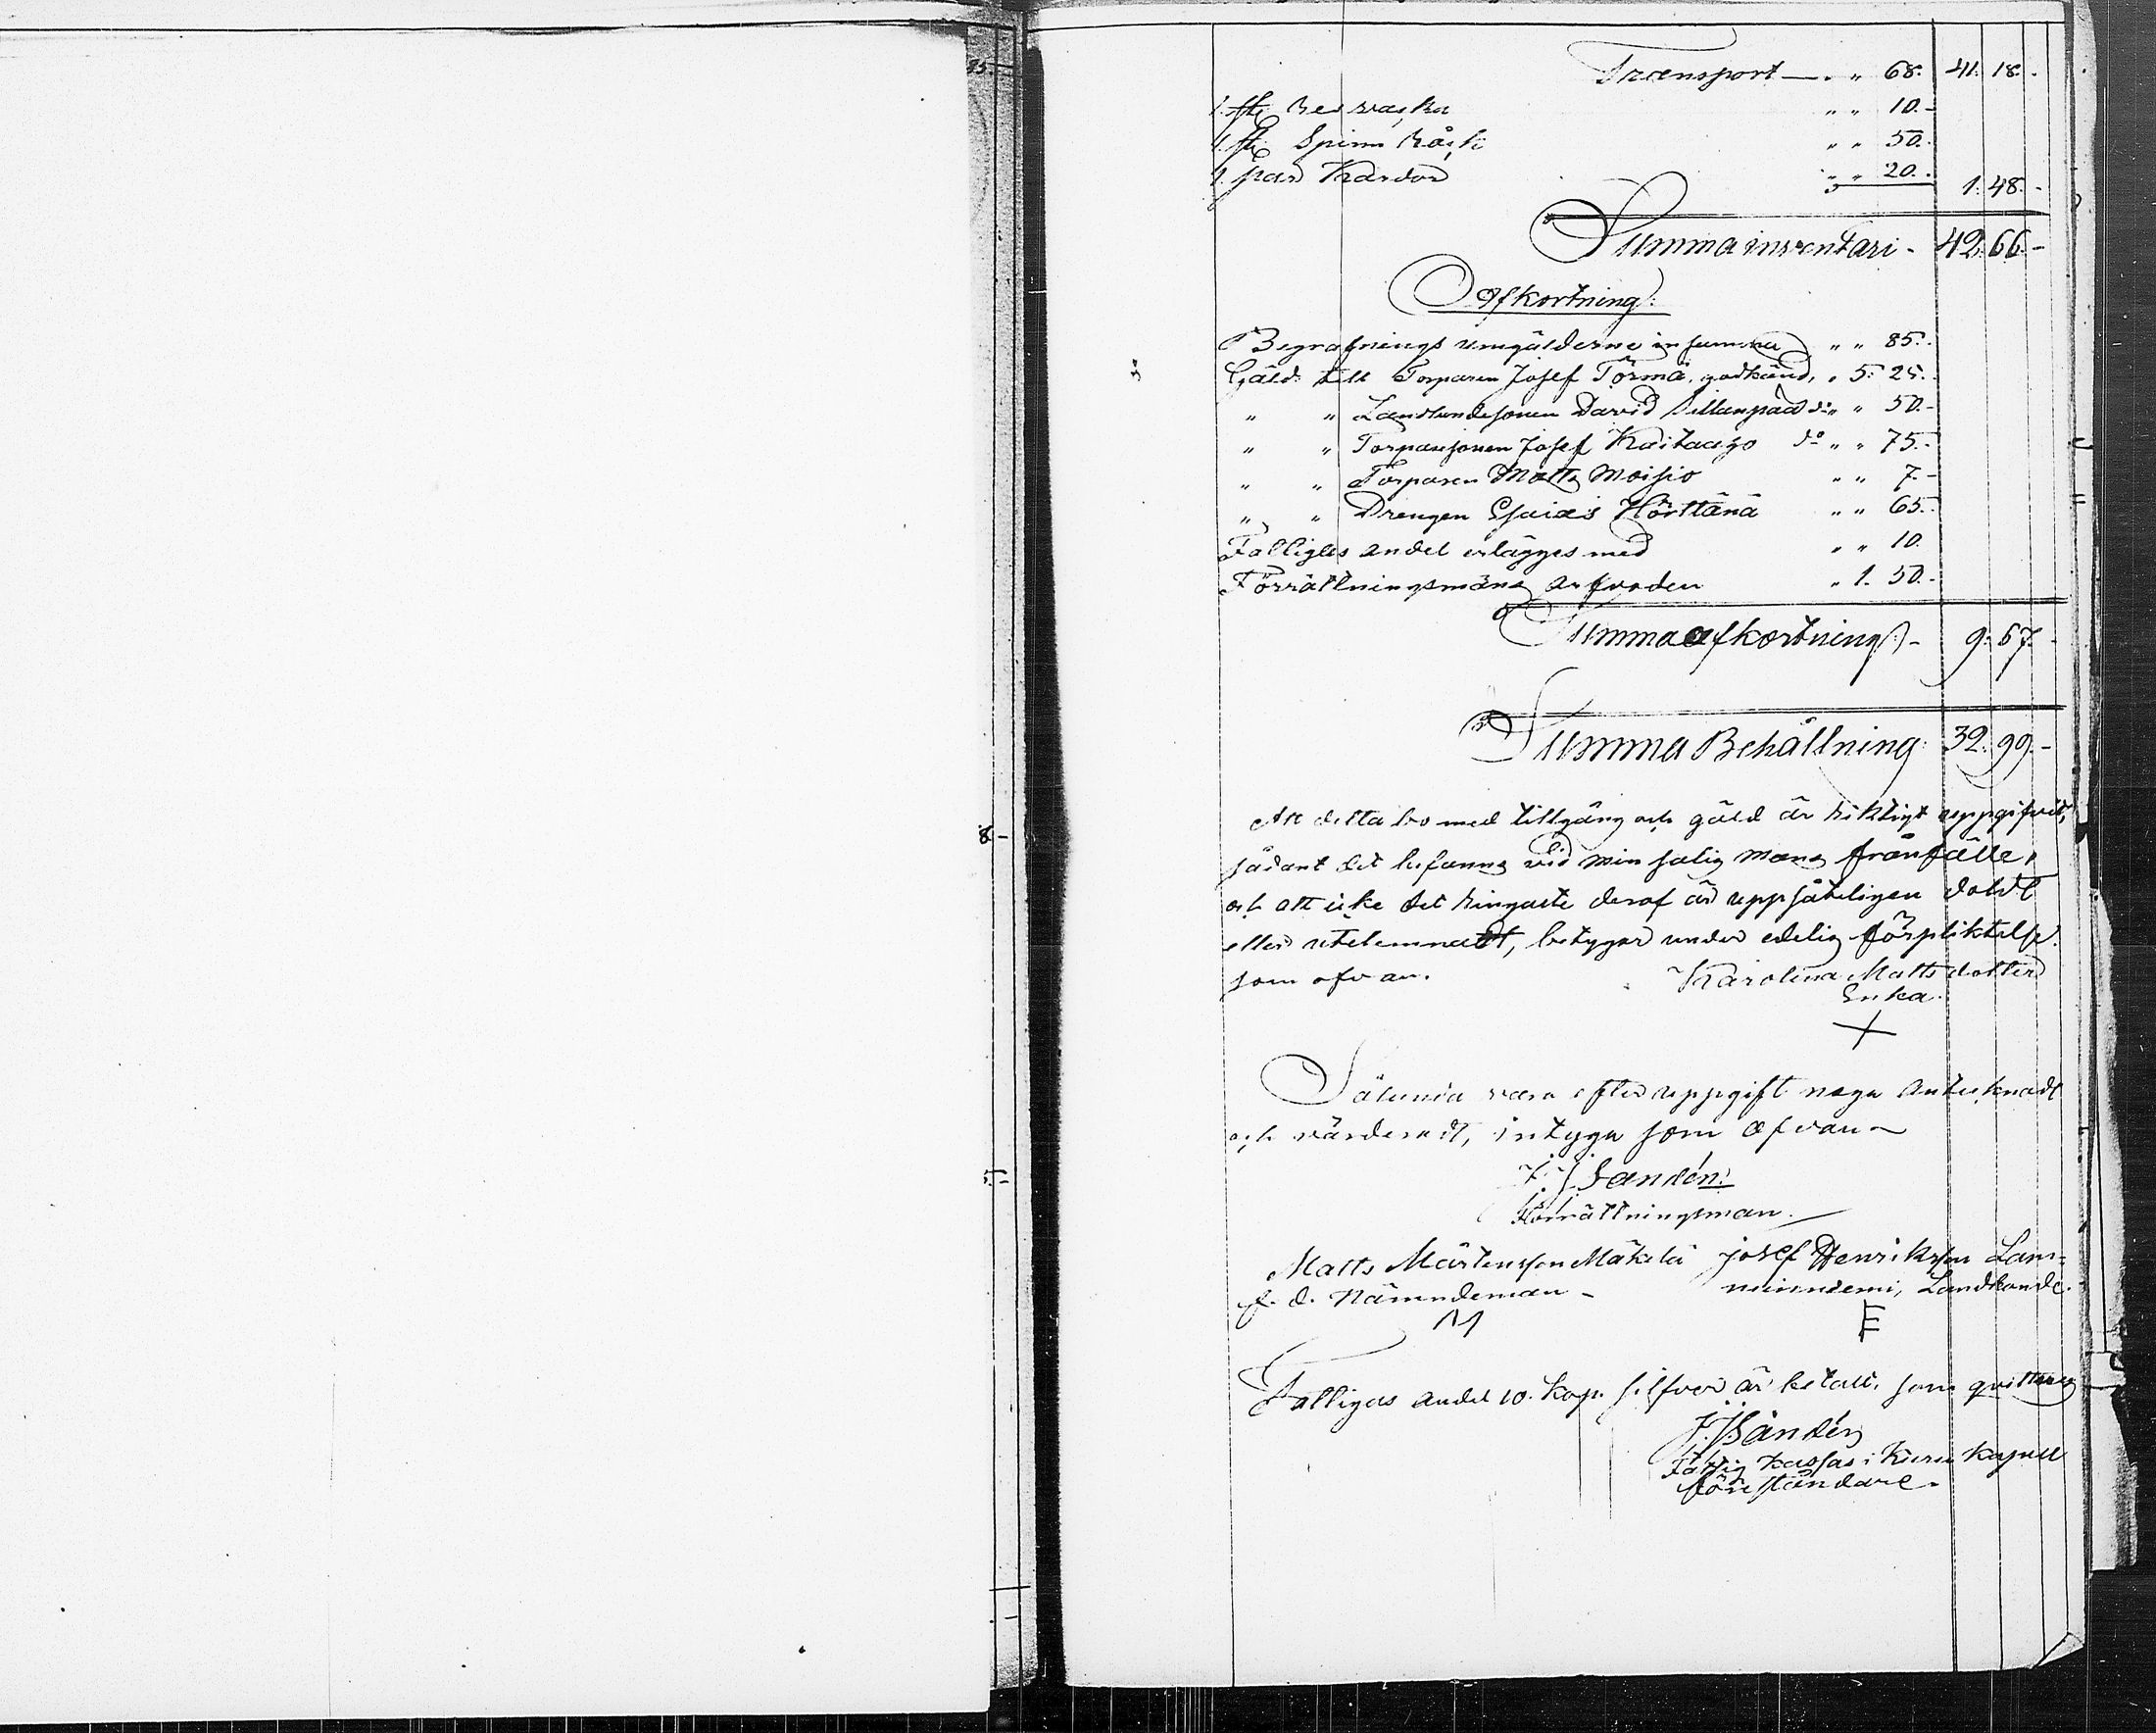 Transport — . „ 68. 41. 18.
1. st: „ „ 10.-
1. st: Spinn Råck „ „ 50.
1. par Kardor „ „ 20. 1. 48.-
Summa inventari - 42. 66.-
Afkortning:
Begrafnings umgälderne in summa „ „ 85.
Gäld till Torparen Josef Törmä, godkänd, „ 5. 25.
„ „ Landbondesonen David Sillanpää do „ „ 50.-
„ „ Torparesonen Josef Kaitaajo do „ „ 75.-
„ „ Torparen Matts Moisio „ „ 7.-
„ „ Drengen Esaias Hörttänä „ „ 65.
Fattiges andel erlägges med „ „ 10.
Förrättningsmäns arfvoden „ 1. 50.-
Summa afkortning - 9. 67.-
Summa Behållning: 32. 99.-
Att detta bo med tillgång och gäld är riktigt uppgifvet,
sådant det befanns vid min salig mans frånfälle,
och att icke det ringaste deraf är uppsåteligen doldt
eller utelemnadt, betygar under edelig förpliktelse.
som ofvan. Karolina Mattsdotter
Enka.
Sålunda vara efter uppgift noga antecknadt
och värderadt, intyga som ofvan -
F. J. Sandén:
Förrättningsman.
Matts Mårtensson Mäkelä Josef Henriksson Lam-
f. d. Nämndeman - minniemi, Landbonde.
M E
Fattigas andel 10. kop. silfver är betalt, som qvitteras
F. J. Sandén
Fattig kassas i Kuru Kapell
föreståndare.
3:
25.
8 -
5 -